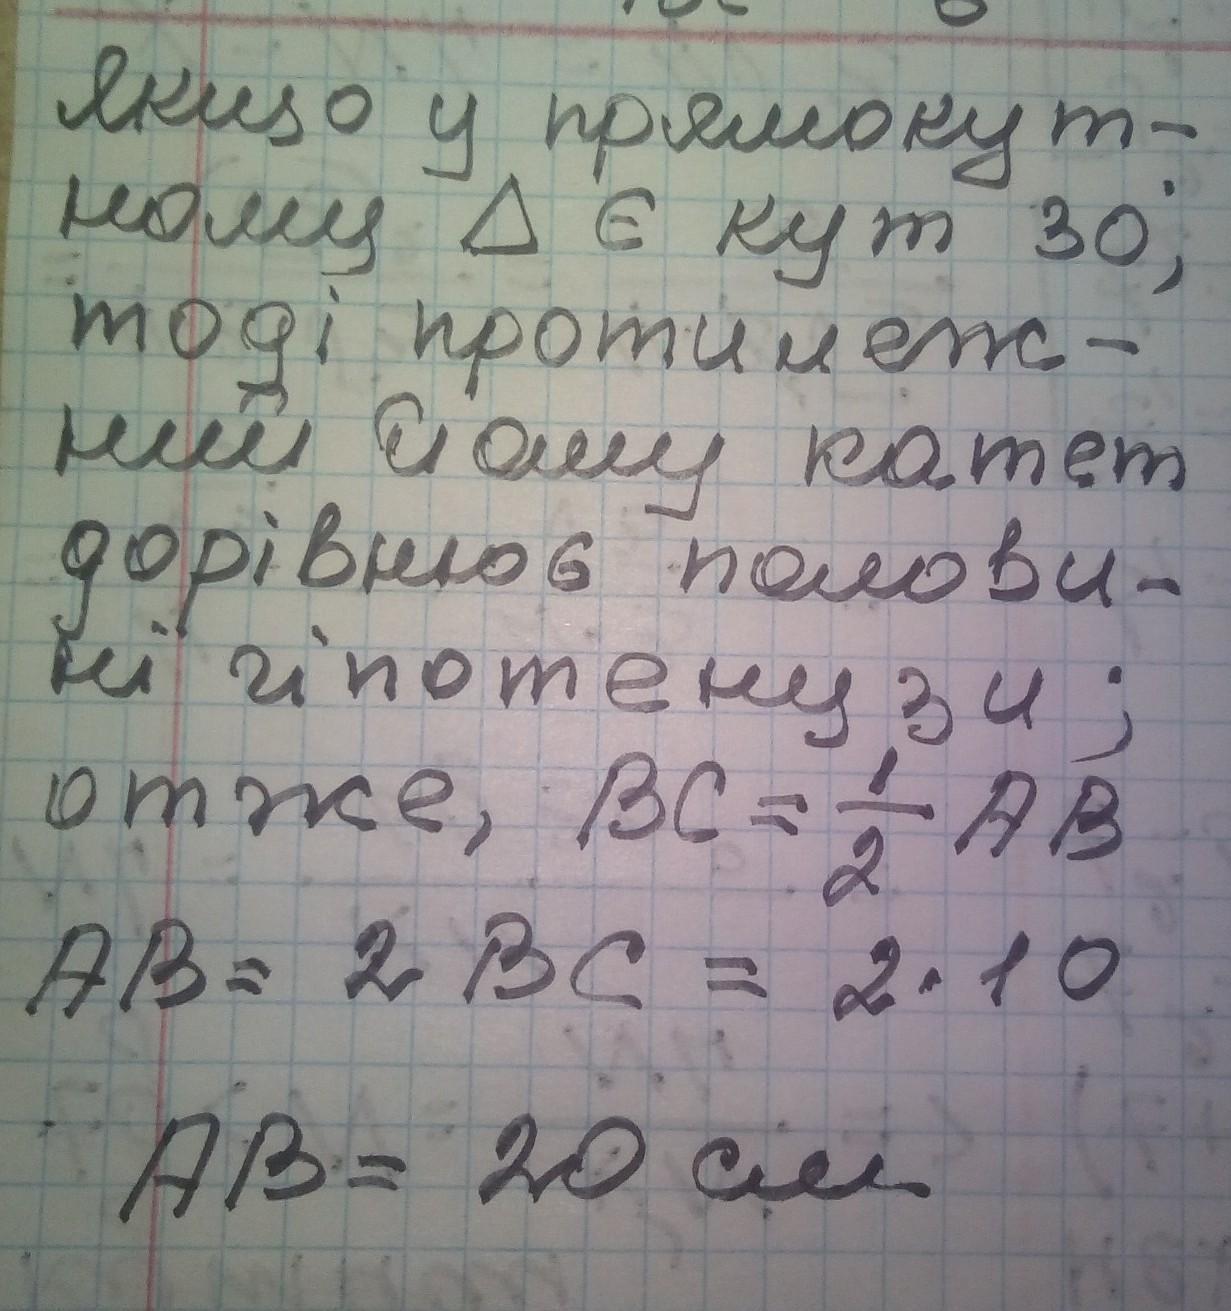 Якщо у прямокут-
ному Δ є кут 30°,
тоді протилеж-
ний йому катет
дорівнює полови-
ні гіпотенузи;
отже, BC = 1/2 AB
AB = 2 BC = 2·10
AB = 20 см